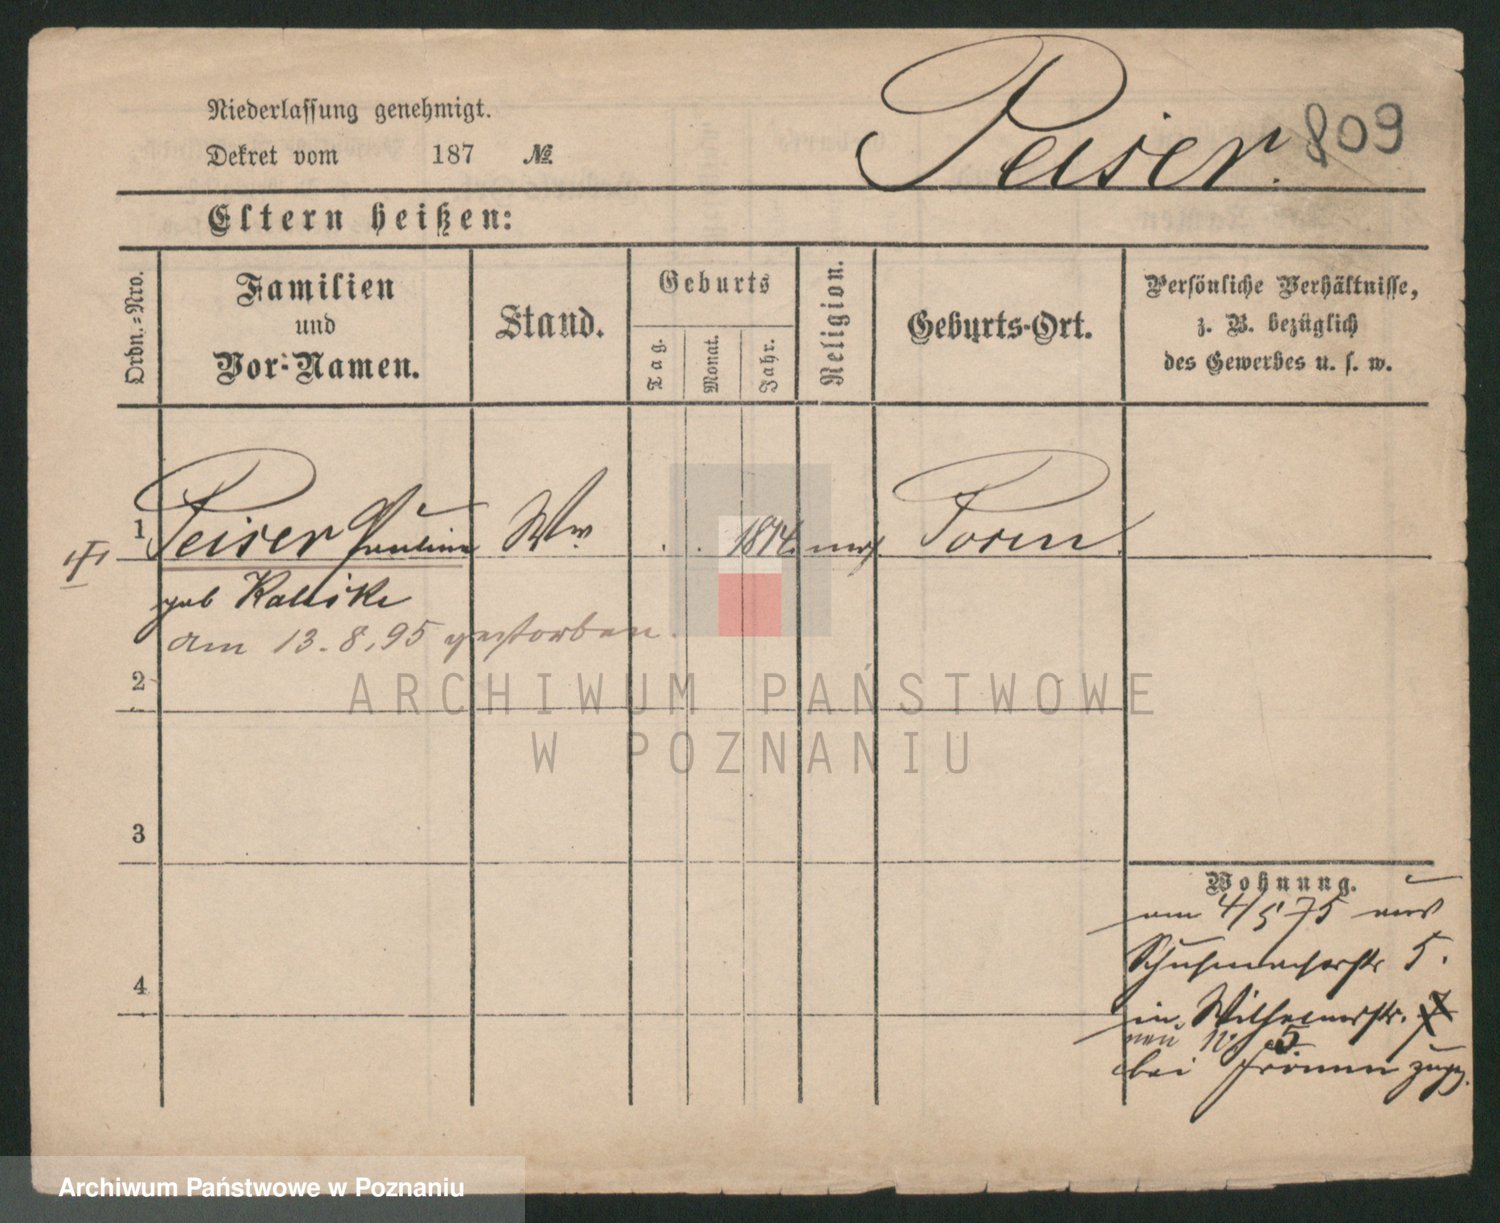 Niederlassung genehmigt.
Dekret vom 187 №
Peiser. 809
Eltern heißen:
Ordn.-Nro.
Familien
und
Vor-Namen.
Stand.
Geburts
Tag.
Monat.
Jahr.
Religion.
Geburts-Ort.
Persönliche Verhältnisse,
z. B. bezüglich
des Gewerbes u. s. w.
1 Peiser Pauline Ww. . . 1814. mos. Posen.
geb Kaliske
am 13.8.95 gestorben.
2
3
4
Wohnung.
am 4/5 75 aus
Schuhmacherstr 5.
in Wilhelmsstr. 7
neu N. 5
bei zugz.
ARCHIWUM PAŃSTWOWE
W POZNANIU
Archiwum Państwowe w Poznaniu